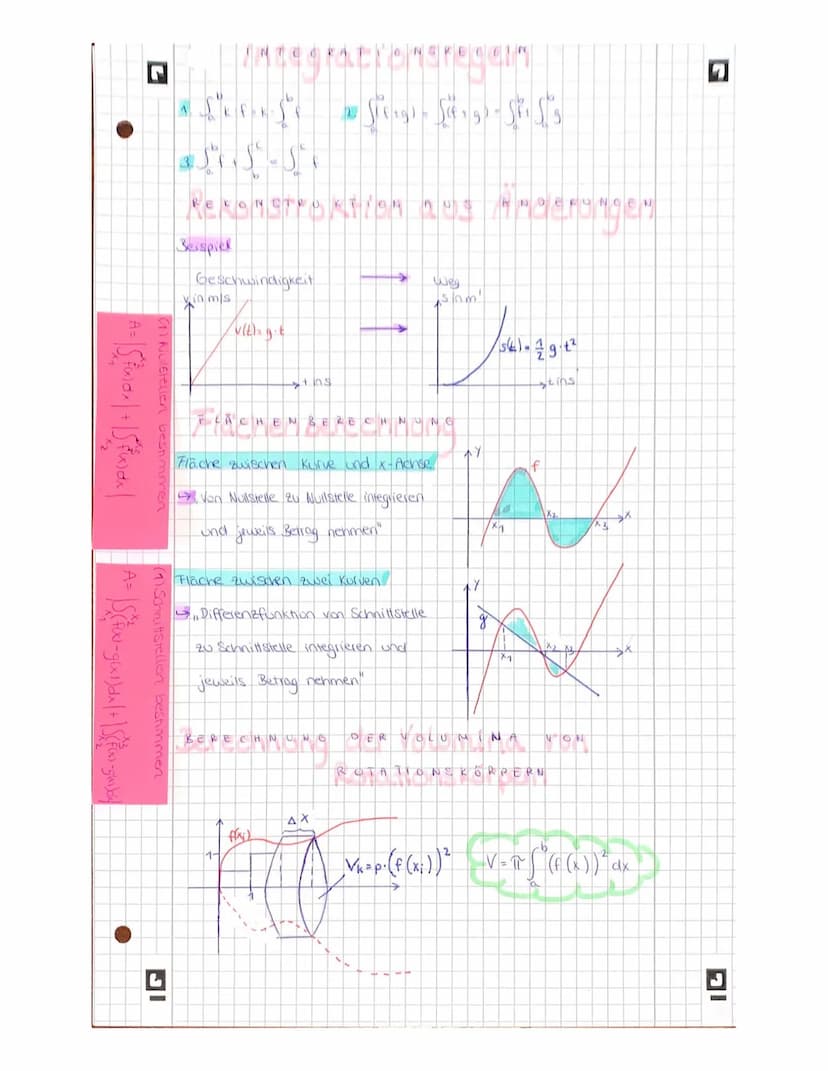 INTEGRATIONSREGELN
1. ∫ₐᵇ k·f = k·∫ₐᵇ f
2. ∫ₐᵇ (f+g) = ∫ₐᵇ (f+g) = ∫ₐᵇ f + ∫ₐᵇ g
3. ∫ₐᵇ f + ∫_b^c = ∫ₐ^c f
REKONSTRUKTION AUS ÄNDERUNGEN
Beispiel
Geschwindigkeit → Weg
v in m/s
s in m
v(t) = g·t →
s(t) = 1/2 g·t²
t in s
t in s
FLÄCHENBERECHNUNG
Fläche zwischen Kurve und x-Achse
→ „Von Nullstelle zu Nullstelle integrieren
und jeweils Betrag nehmen"
y
f
x₁ x₂ x₃ x
(1) Nullstellen bestimmen
A = |∫_{x₁}^{x₂} f(x)dx| + |∫_{x₂}^{x₃} f(x)dx|
Fläche zwischen zwei Kurven
→ „Differenzfunktion von Schnittstelle
zu Schnittstelle integrieren und
jeweils Betrag nehmen"
y
g
x₁ x₂ x₃ x
(1) Schnittstellen bestimmen
A = |∫_{x₁}^{x₂} (f(x)-g(x))dx| + |∫_{x₂}^{x₃} (f(x)-g(x))dx|
BERECHNUNG DER VOLUMINA VON
ROTATIONSKÖRPERN
Δx
f(xᵢ)
1
1
Vₖ = p·(f(xᵢ))²
V = π ∫ₐᵇ (f(x))² dx